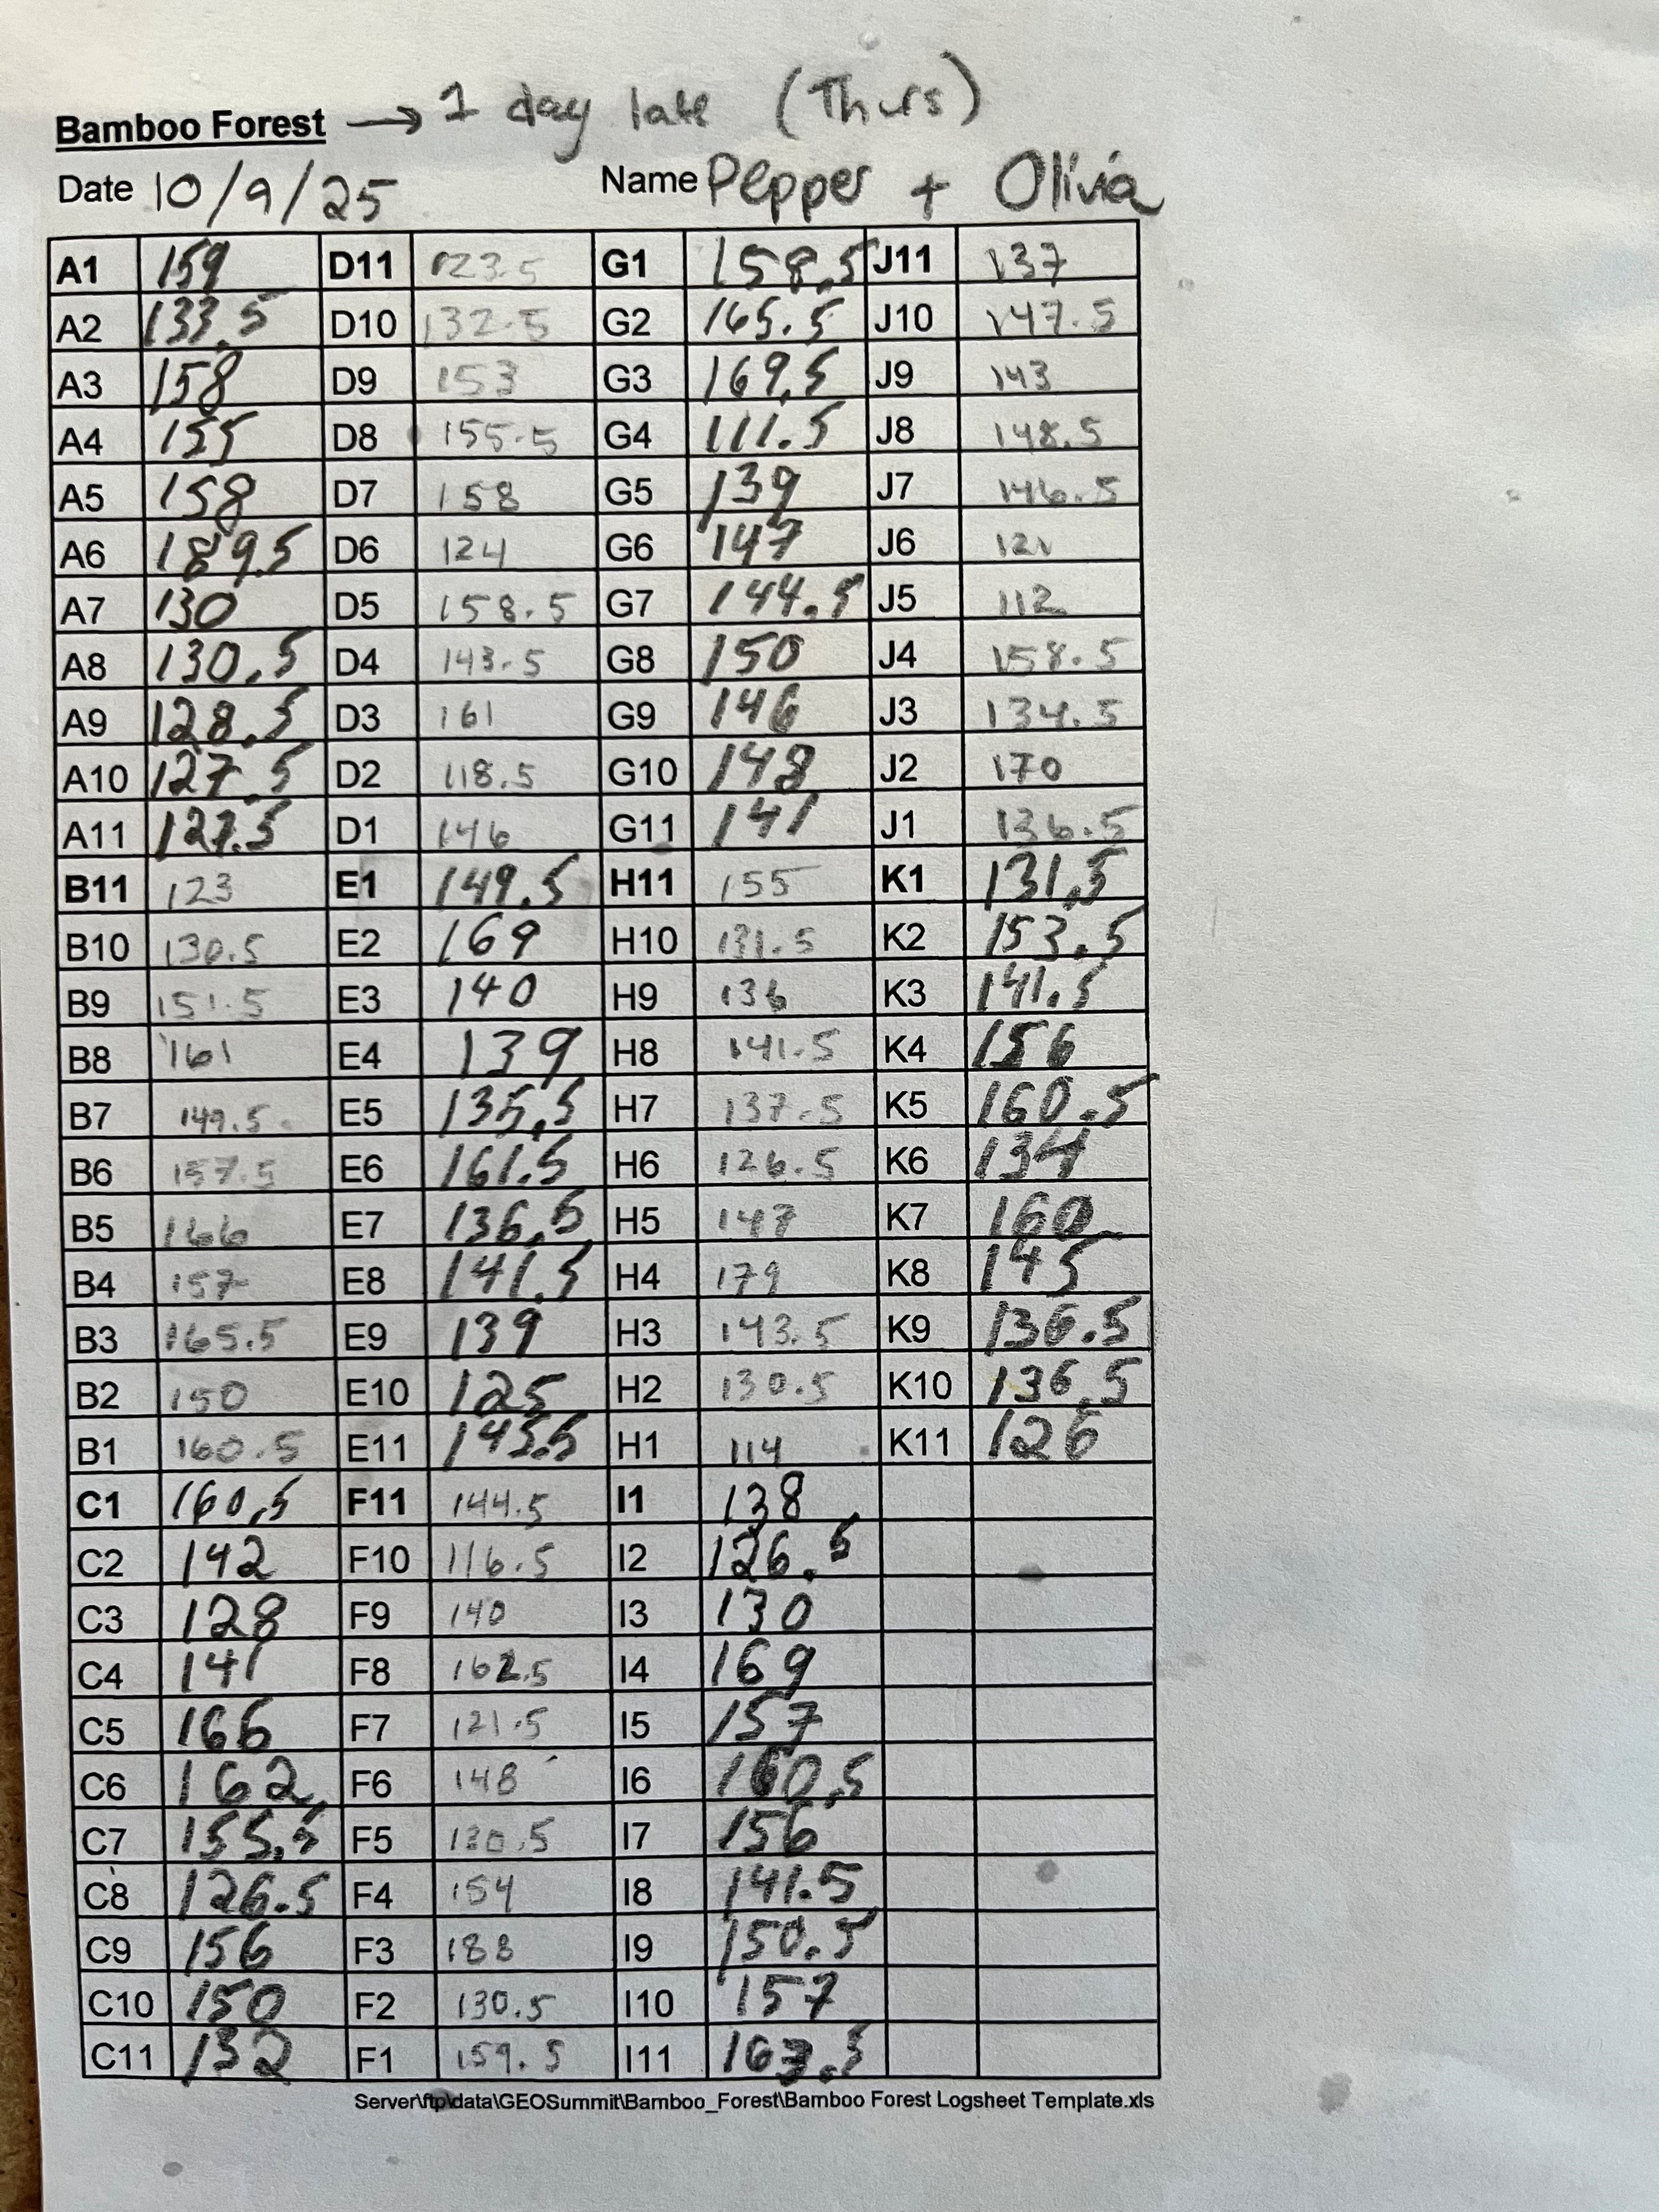 Bamboo Forest → 1 day late (Thurs)
Date 10/9/25 Name Pepper + Olivia
A1 159 D11 123.5 G1 158.5 J11 137
A2 133.5 D10 132.5 G2 165.5 J10 147.5
A3 158 D9 153 G3 169.5 J9 143
A4 155 D8 155.5 G4 111.5 J8 148.5
A5 158 D7 158 G5 139 J7 146.5
A6 189.5 D6 124 G6 147 J6
A7 130 D5 158.5 G7 144.5 J5 112
A8 130.5 D4 143.5 G8 150 J4 158.5
A9 128.5 D3 161 G9 146 J3 134.5
A10 127.5 D2 118.5 G10 148 J2 170
A11 127.5 D1 146 G11 141 J1 136.5
B11 123 E1 149.5 H11 155 K1 131.5
B10 130.5 E2 169 H10 131.5 K2 153.5
B9 151.5 E3 140 H9 136 K3 141.5
B8 161 E4 139 H8 141.5 K4 156
B7 149.5 E5 135.5 H7 137.5 K5 160.5
B6 157.5 E6 161.5 H6 126.5 K6 134
B5 166 E7 136.5 H5 147 K7 160
B4 157 E8 141.5 H4 179 K8 145
B3 165.5 E9 139 H3 143.5 K9 136.5
B2 150 E10 125 H2 130.5 K10 136.5
B1 160.5 E11 145.5 H1 114 K11 126
C1 160.5 F11 144.5 I1 138
C2 142 F10 116.5 I2 126.5
C3 128 F9 140 I3 130
C4 141 F8 162.5 I4 169
C5 166 F7 121.5 I5 157
C6 162 F6 148 I6 160.5
C7 155.5 F5 130.5 I7 156
C8 126.5 F4 154 I8 141.5
C9 156 F3 188 I9 150.5
C10 150 F2 130.5 I10 157
C11 132 F1 159.5 I11 163.5
Server\ftp\data\GEOSummit\Bamboo_Forest\Bamboo Forest Logsheet Template.xls